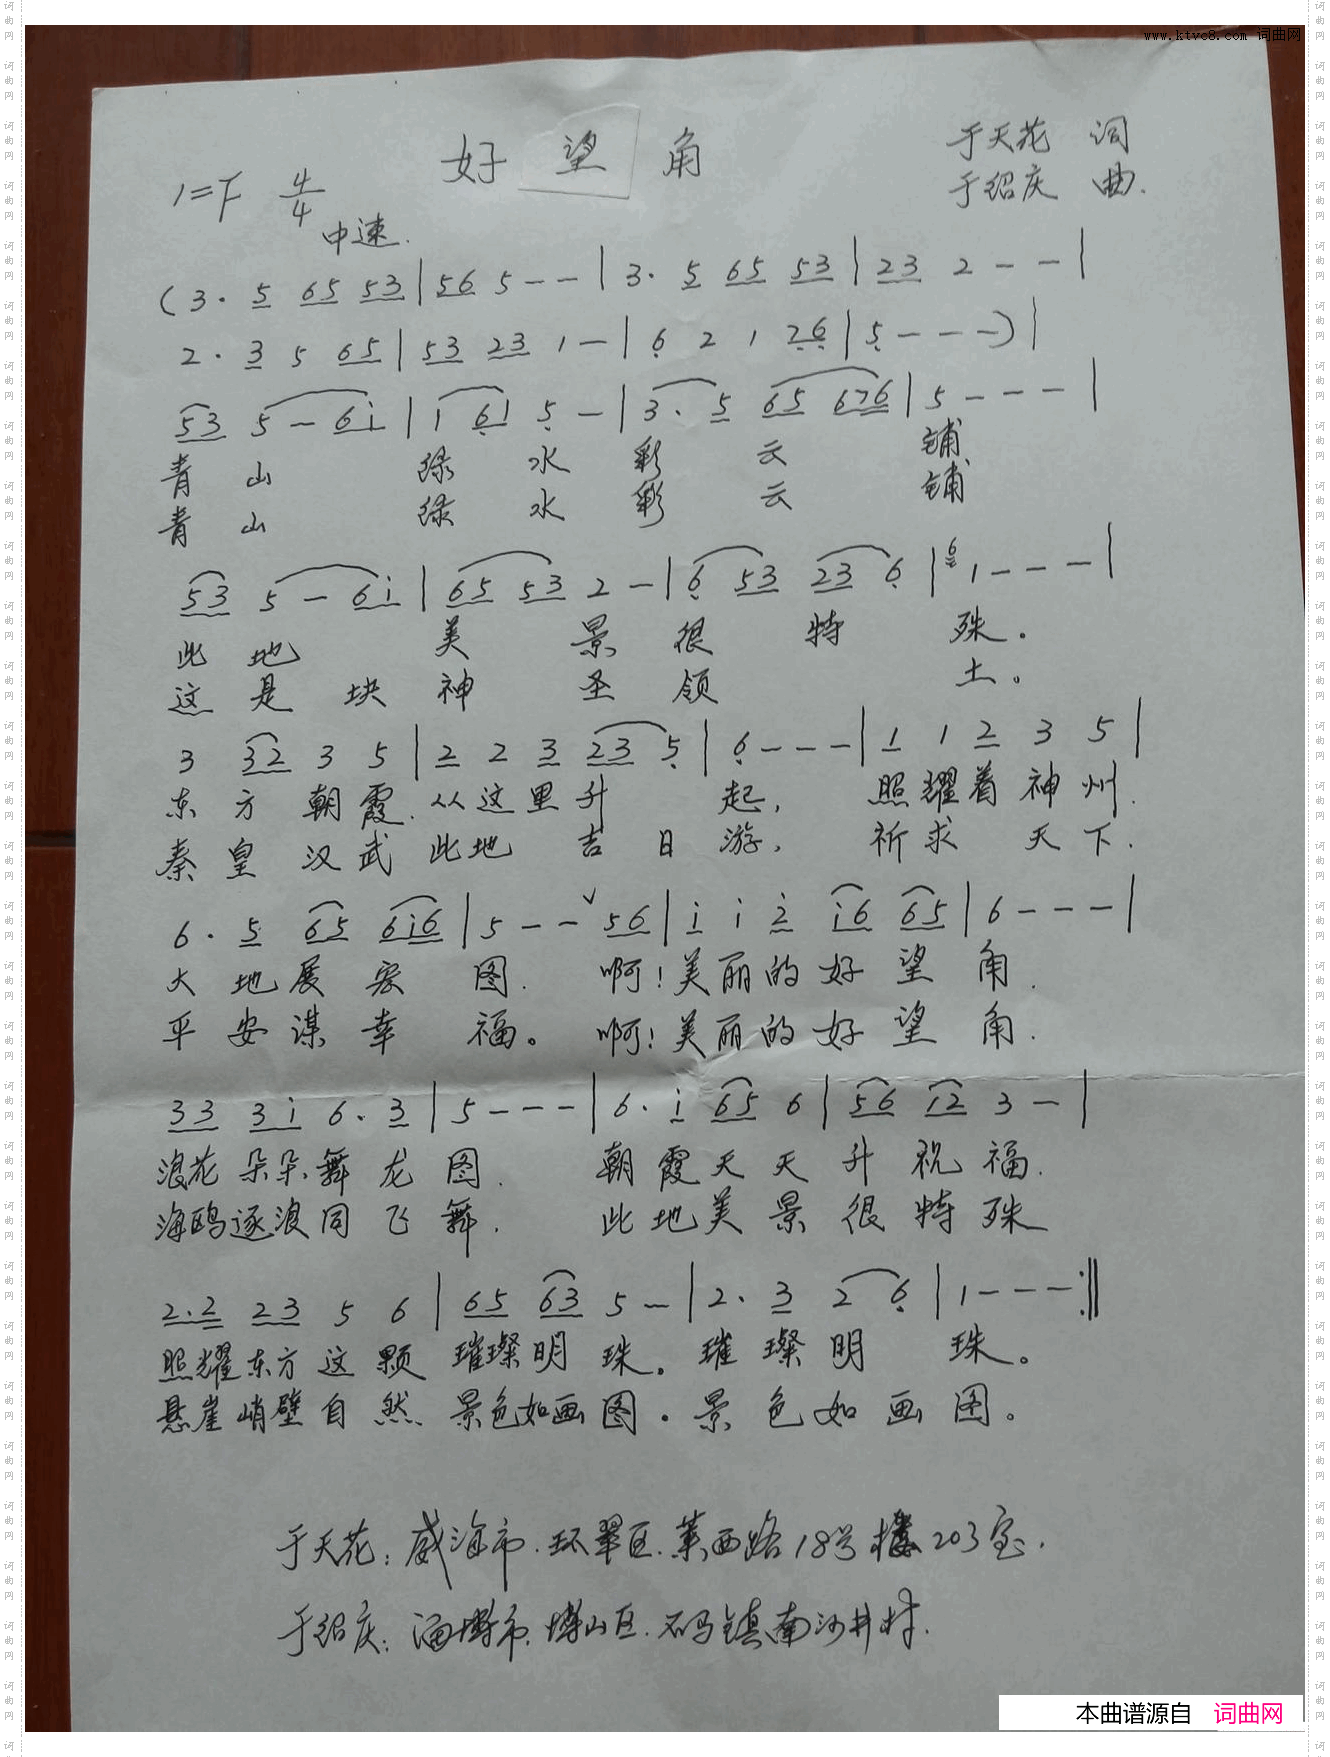 www.ktvc8.com 词曲网
好望角
于天花 词
1=F 4/4
于绍庆 曲.
中速.
(3· 5 65 53 | 56 5 - - | 3· 5 65 53 | 23 2 - - |
2· 3 5 65 | 53 23 1 - | 6 2 1 26 | 5 - - -) |
53 5 - 6i | 1 61 5 - | 3· 5 65 676 | 5 - - - |
青 山 绿 水 彩 云 铺
青 山 绿 水 彩 云 铺
53 5 - 6i | 65 53 2 - | 6 53 23 6 | 6 1 - - - |
此 地 美 景 很 特 殊。
这 是 块 神 圣 领 土。
3 32 3 5 | 2 2 3 23 5 | 6 - - - | 1 1 2 3 5 |
东 方 朝 霞. 从 这 里 升 起, 照 耀 着 神 州.
秦 皇 汉 武 此 地 吉 日 游, 祈 求 天 下.
6· 5 65 6i6 | 5 - - ∨ 56 | i i 2 i6 65 | 6 - - - |
大 地 展 宏 图. 啊! 美 丽 的 好 望 角.
平 安 谋 幸 福。 啊! 美 丽 的 好 望 角.
33 3i 6· 3 | 5 - - - | 6· i 65 6 | 56 i2 3 - |
浪花 朵朵 舞 龙 图. 朝 霞 天 天 升 祝 福.
海鸥逐浪同 飞 舞. 此 地 美 景 很 特 殊
2·2 23 5 6 | 65 63 5 - | 2· 3 2 6 | 1 - - - :||
照耀 东方 这 颗 璀璨明 珠。 璀 璨 明 珠。
悬崖 峭壁 自 然 景色如画图。 景 色 如 画 图。
于天花: 威海市.环翠区.莱西路18号楼203室.
于绍庆: 淄博市.博山区.石马镇南沙井村.
本曲谱源自 词曲网